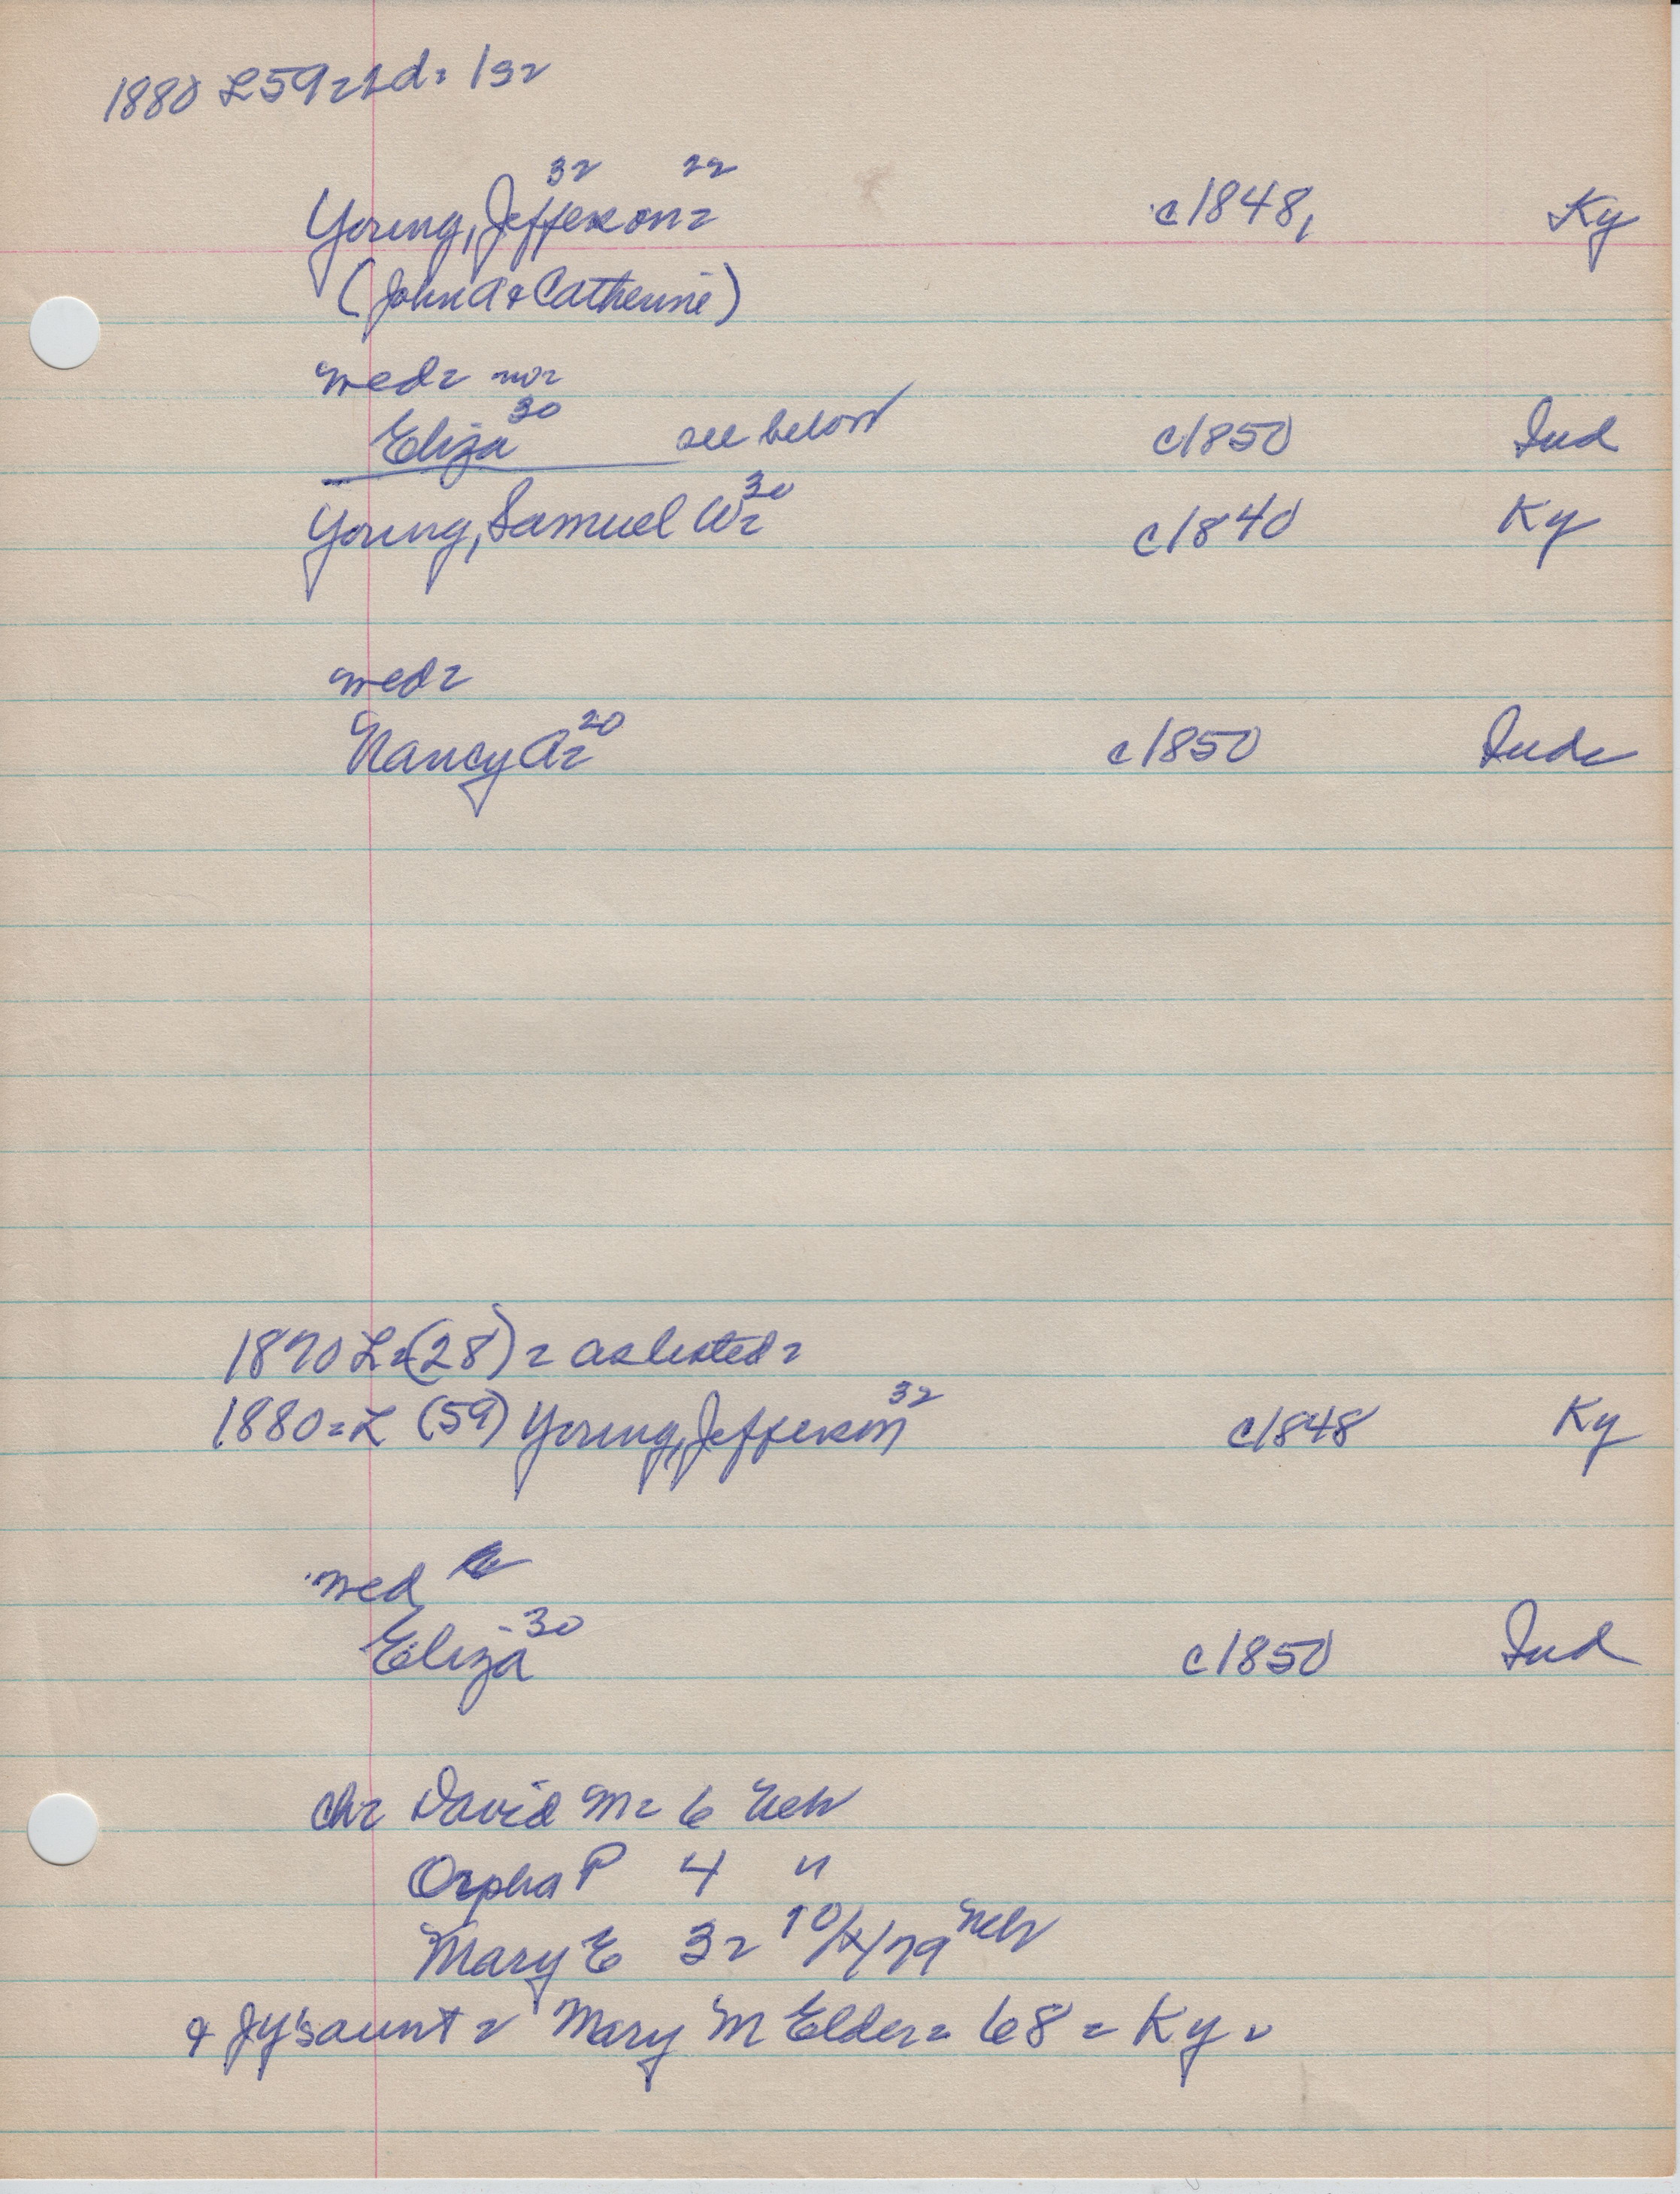 1880 L59=Ld= 132
32 22
Young, Jefferson= c1848, Ky
(John A & Catherine)
med= no=
30
Eliza see below c1850 Ind
30
Young, Samuel W= c1840 Ky
med=
20
Nancy A= c1850 Ind=
1870 L=(28)= as listed=
32
1880=L (59) Young, Jefferson c1848 Ky
med
30
Eliza c1850 Ind
ch= David M= 6 Neb
Orpha P 4 "
Mary E 3= 10/x/79 Neb
& JY's aunt = Mary M Elder= 68 = Ky=